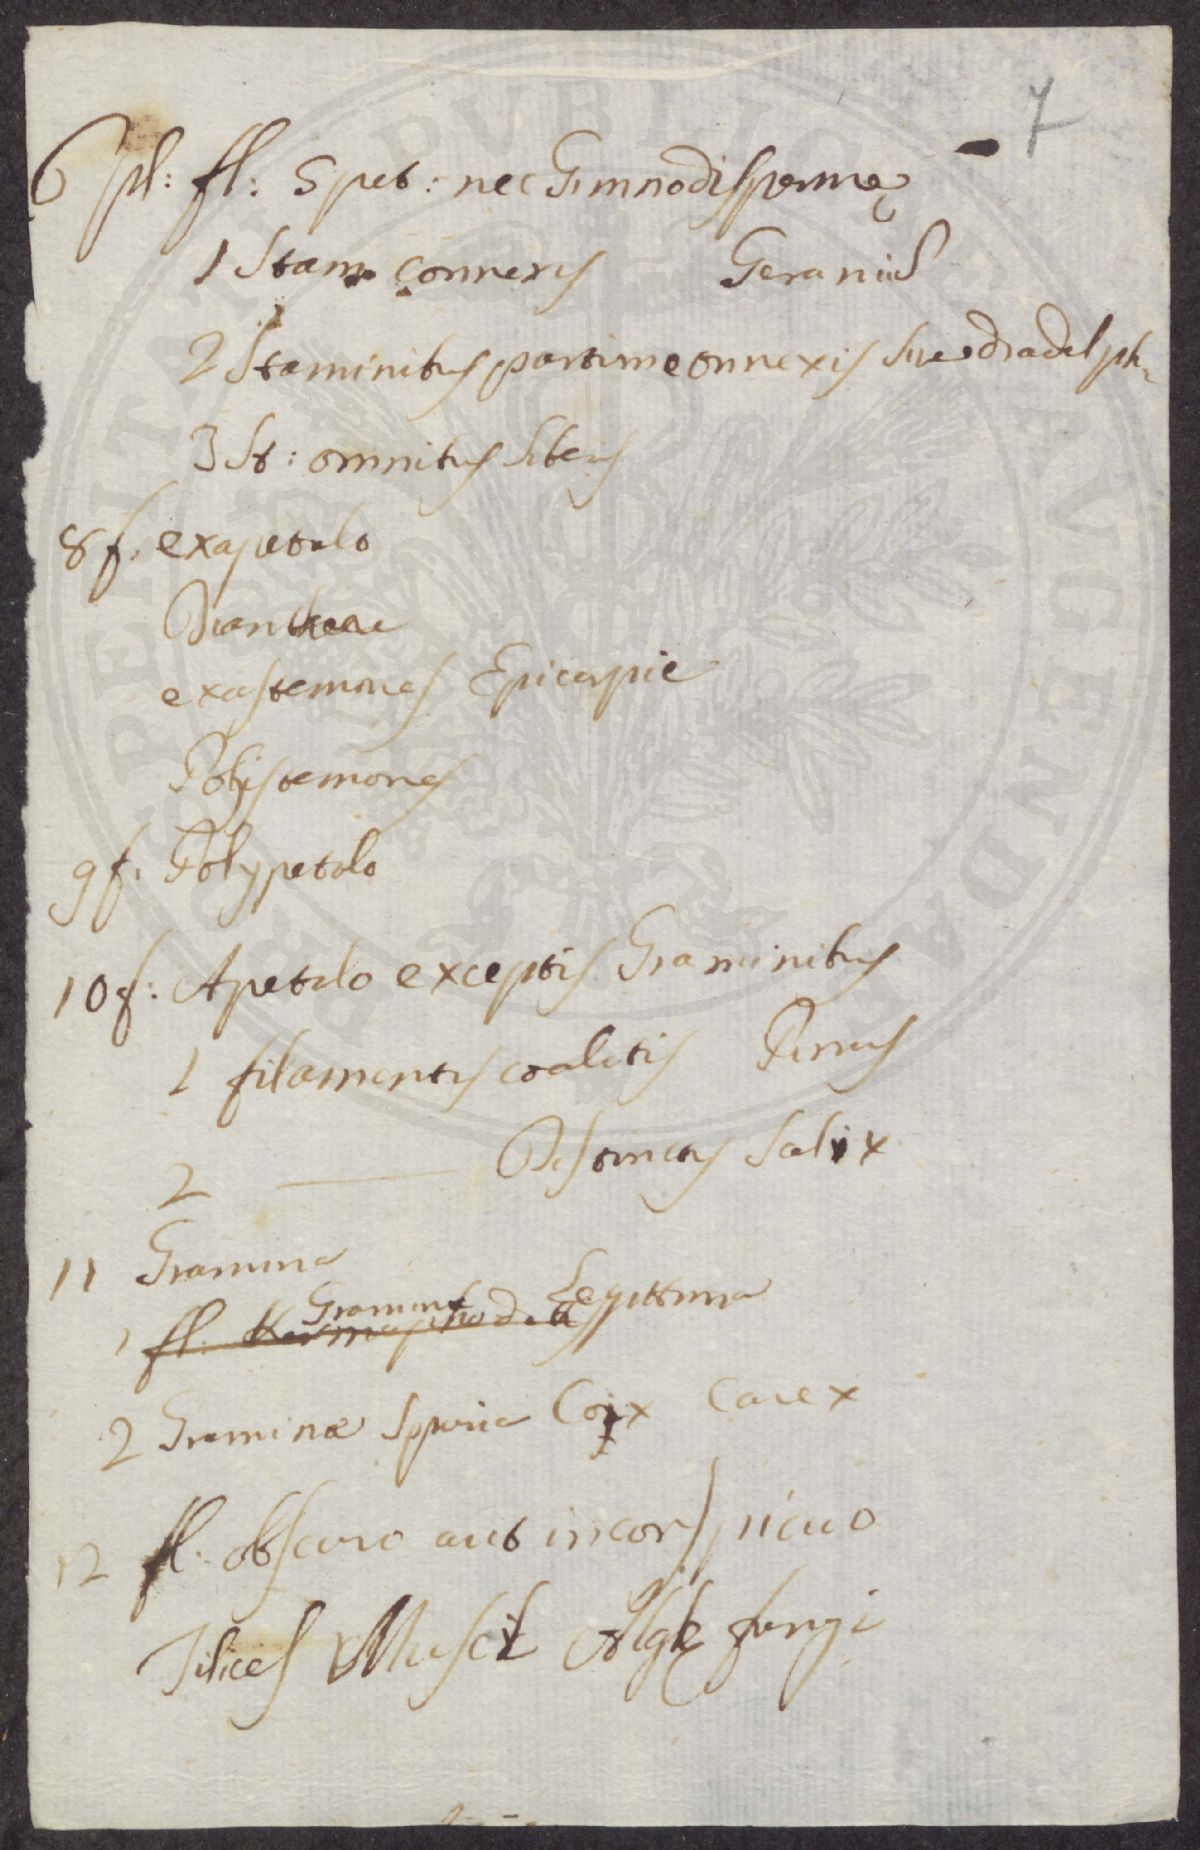 7
6 pl: fl: 5 pet: nec Gimnodisperme
1 Stam connexis Geranius
2 Staminibus partim connexis sive diadelph
3 St: omnibus liberis
8 f. exapetalo
Dianthere
exastemones Epicarpie
Polistemones
9 f. Polypetalo
10 f: Apetalo exceptis Graminibus
1 filamentis coalitis Pinus
2 —— Distinctis Salix
11 Gramina
Gramina Legittima
1 fl. Hermaphrodita
2 Graminæ Spuria Coix Carex
12 fl. obscuro aut inconspicuo
Filices Musci Algæ fungi